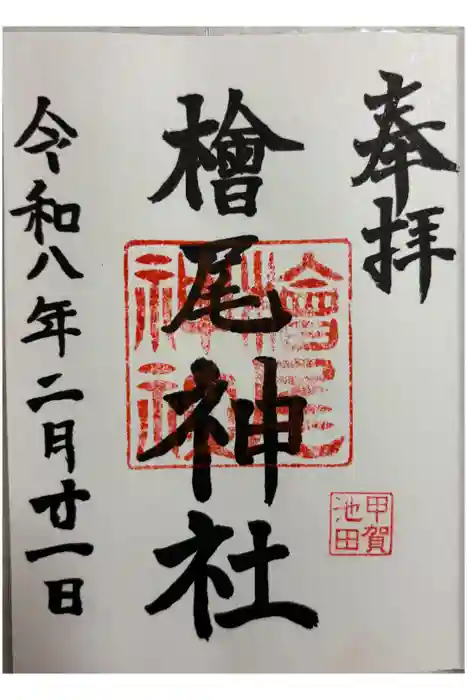 奉拝
檜尾神社
檜尾神社
甲賀
池田
令和八年二月廿一日